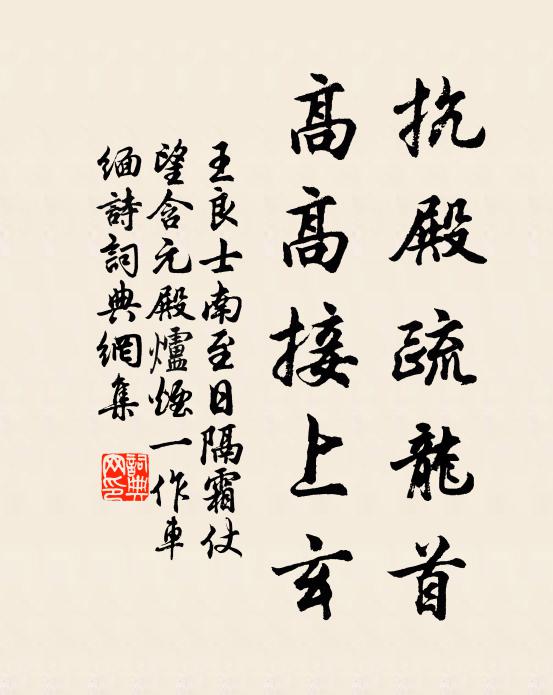 抗殿疏龍首
高高接上玄
王良士南至日隔霜仗
望含元殿爐煙一作車
緬詩詞典網集
詞典
网印